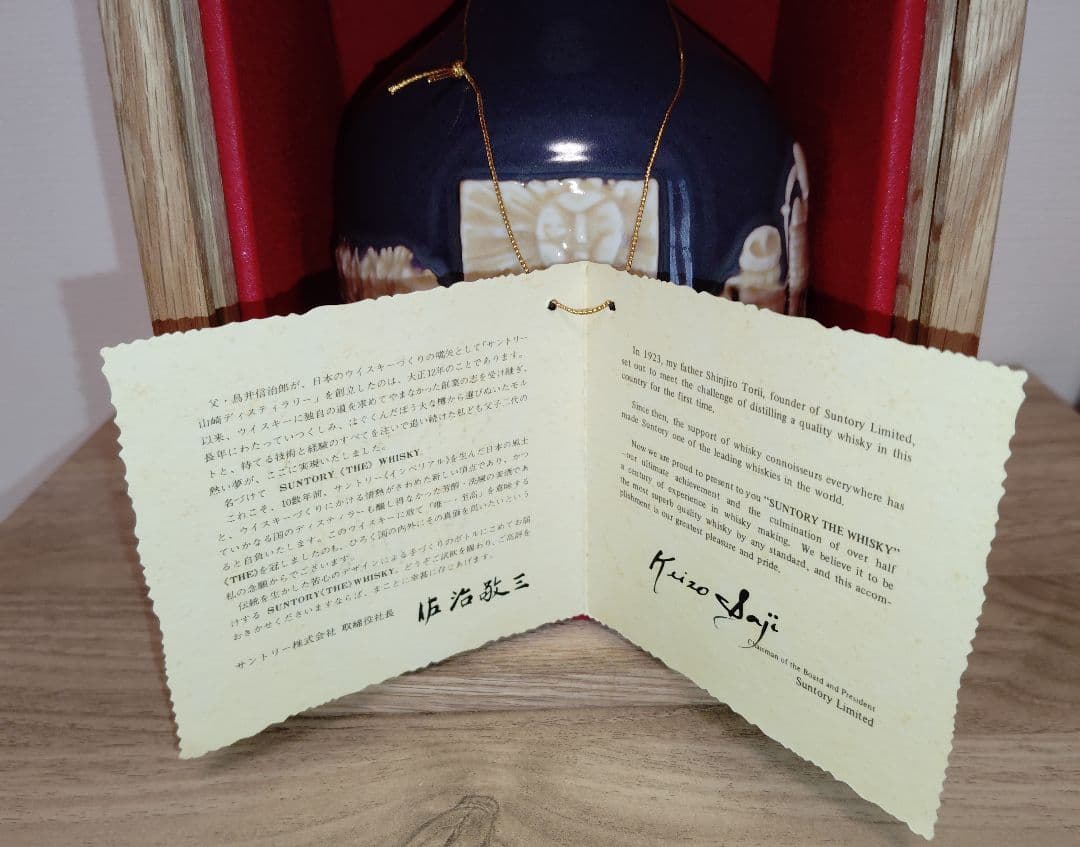 父・鳥井信治郎が、日本のウイスキーづくりの嚆矢として「サントリー
山崎ディスティラリー」を創立したのは、大正12年のことであります。
以来、ウイスキーに独自の道を求めてやまなかった創業の志を受け継ぎ、
長年にわたっていつくしみ、はぐくんだぼう大な樽から選びぬいたモル
トと、持てる技術と経験のすべてを注いで追い続けた私ども父子二代の
熱い夢が、ここに実現いたしました。
名づけて SUNTORY《THE》WHISKY.
これこそ、10数年前、サントリー《インペリアル》を生んだ日本の風土
と、ウイスキーづくりにかける情熱がきわめた新しい頂点であり、かつ
ていかなる国のディスティラーも醸し得なかった芳醇・洗練の美酒であ
ると自負いたします。このウイスキーに敢て、「唯一・至高」を意味する
《THE》を冠しましたのも、ひろく国の内外にその真価を問いたいという
私の念願からでございます。
伝統を生かした苦心のデザインによる手づくりのボトルにこめてお届
けする SUNTORY《THE》WHISKY. どうぞご試飲を賜わり、ご高評を
おきかせくださいますならば、まことに幸甚に存じあげます。
サントリー株式会社 取締役社長 佐治敬三
In 1923, my father Shinjiro Torii, founder of Suntory Limited,
set out to meet the challenge of distilling a quality whisky in this
country for the first time.
Since then, the support of whisky connoisseurs everywhere has
made Suntory one of the leading whiskies in the world.
Now we are proud to present to you "SUNTORY THE WHISKY"
–our ultimate achievement and the culmination of over half
a century of experience in whisky making. We believe it to be
the most superb quality whisky by any standard, and this accom-
plishment is our greatest pleasure and pride.
Keizo Saji
Chairman of the Board and President
Suntory Limited